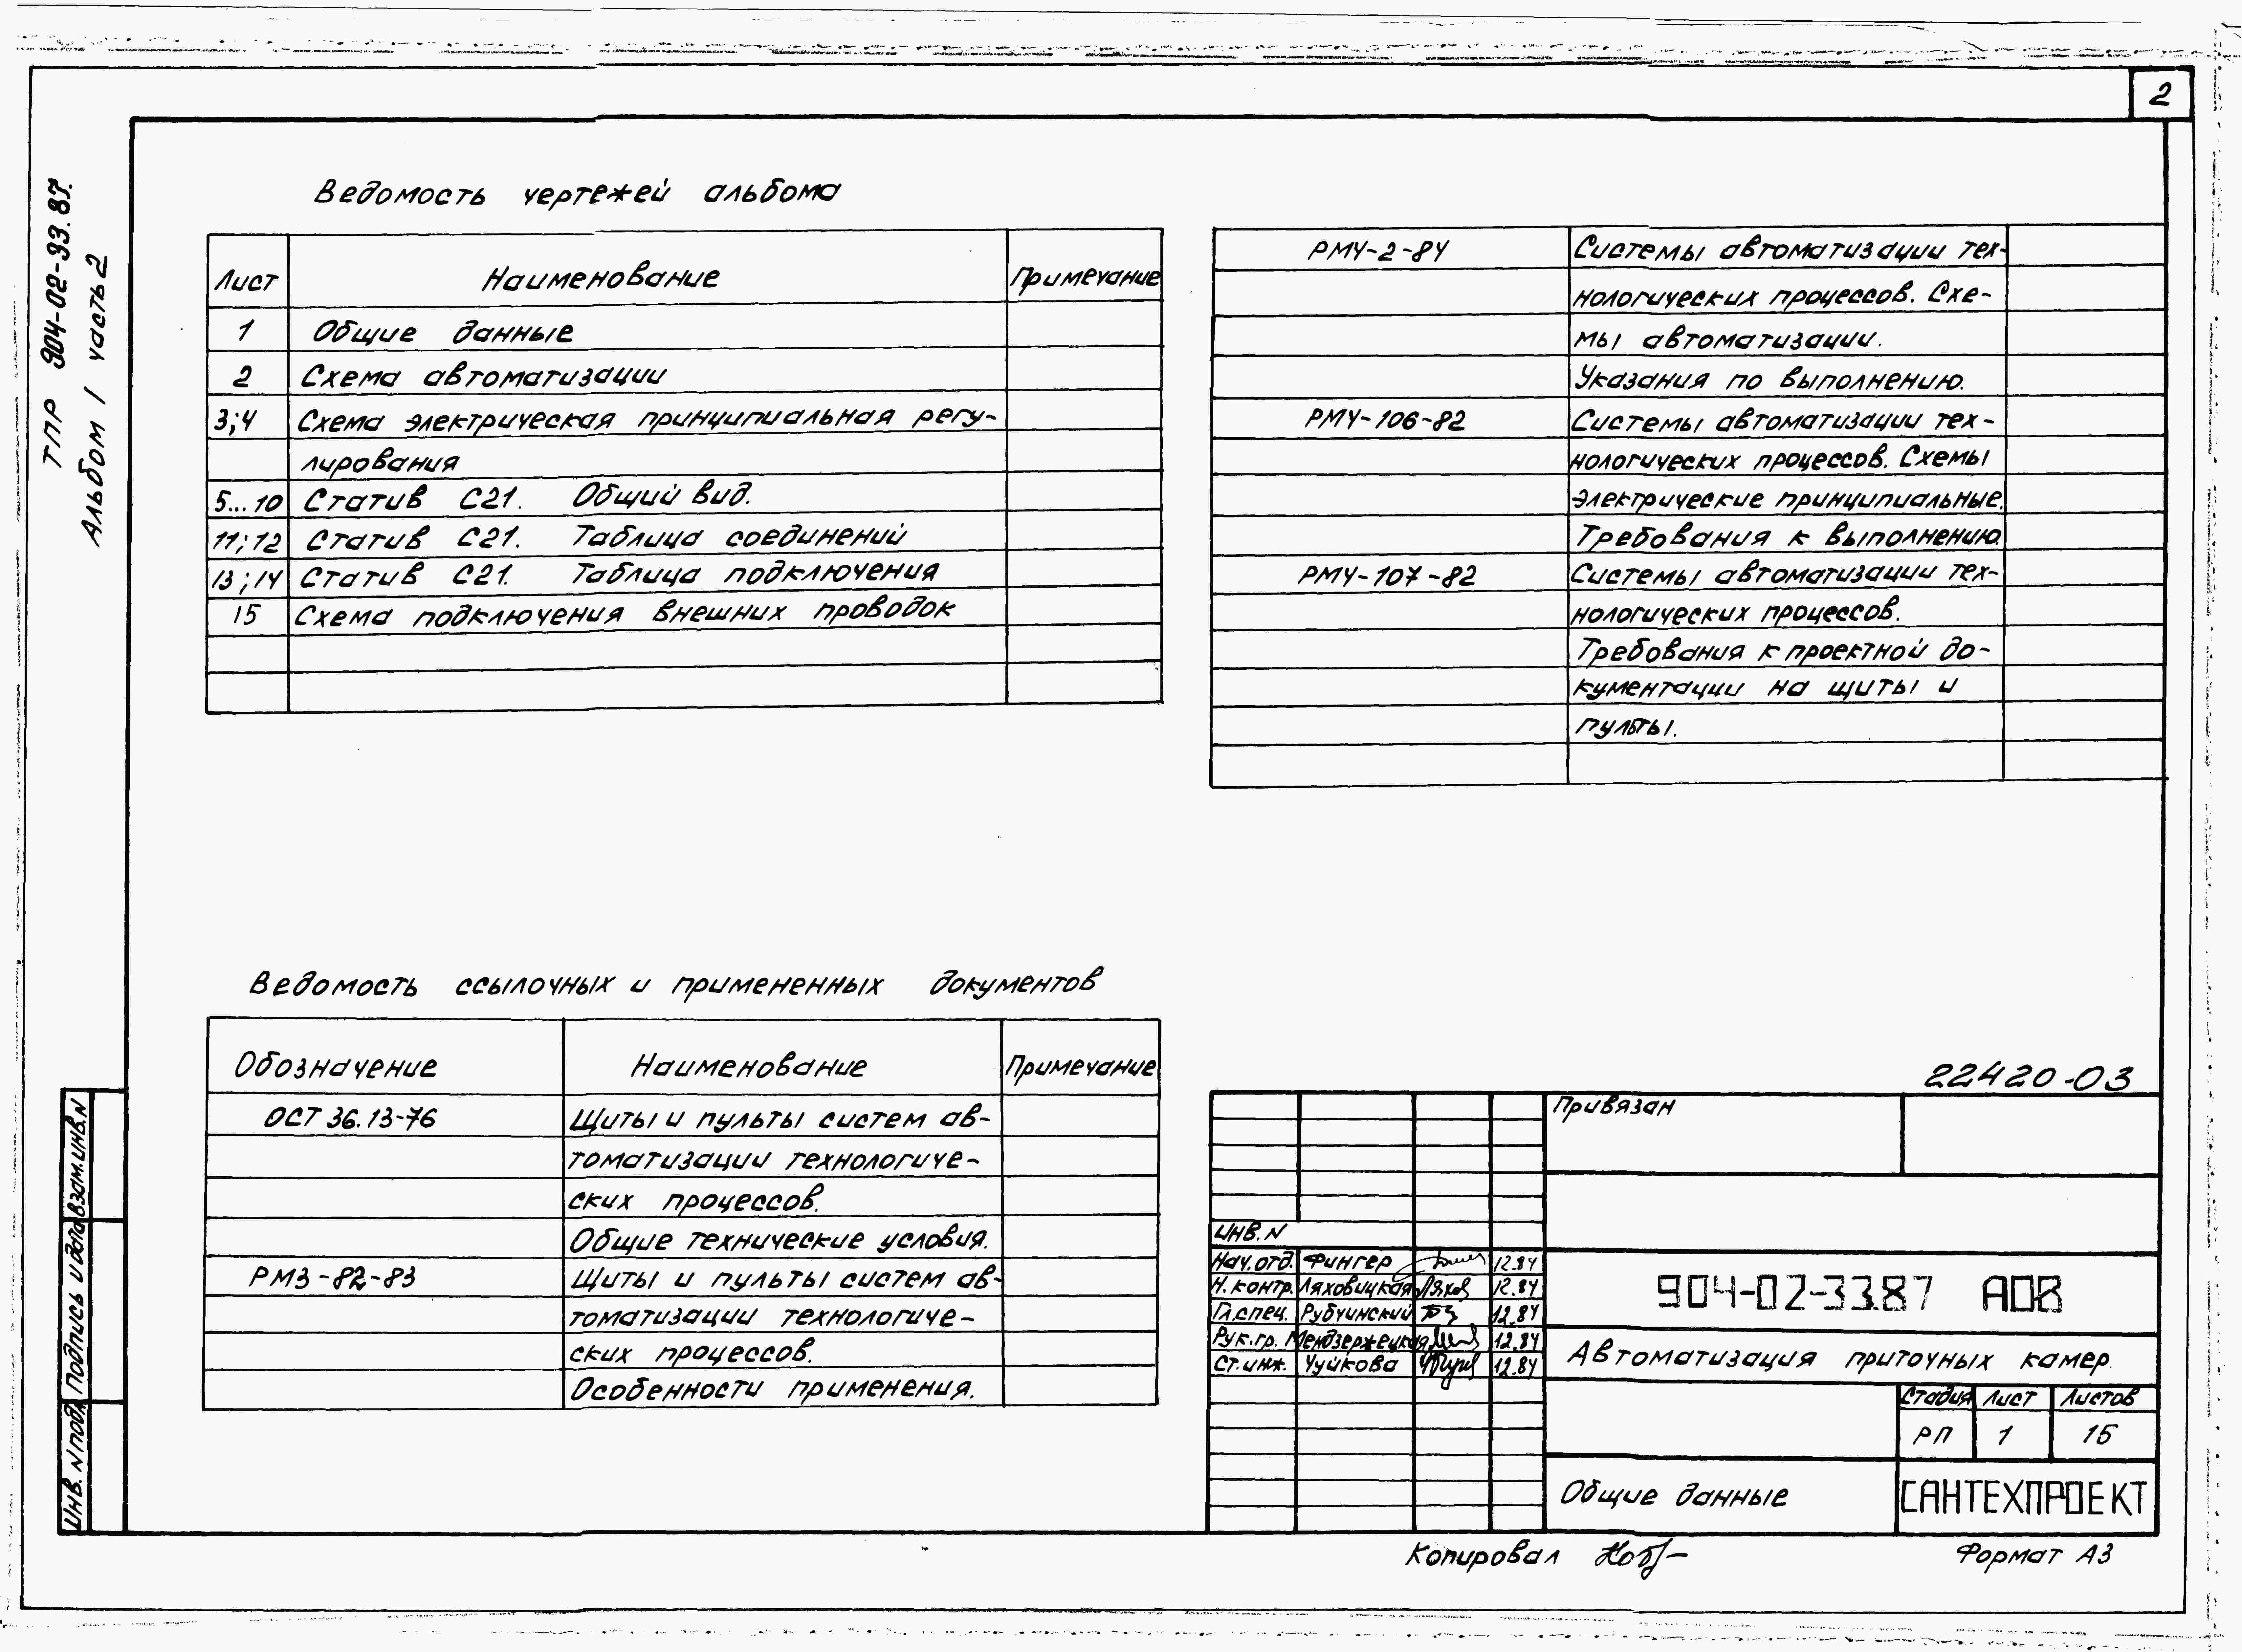 2
ТПР 904-02-33.87.
Альбом 1 часть 2
Ведомость чертежей альбома
Лист Наименование Примечание
1 Общие данные
2 Схема автоматизации
3;4 Схема электрическая принципиальная регу-
лирования
5...10 Статив С21. Общий вид.
11;12 Статив С21. Таблица соединений
13;14 Статив С21. Таблица подключения
15 Схема подключения внешних проводок
РМ4-2-84 Системы автоматизации тех-
нологических процессов. Схе-
мы автоматизации.
Указания по выполнению.
РМ4-106-82 Системы автоматизации тех-
нологических процессов. Схемы
электрические принципиальные.
Требования к выполнению.
РМ4-107-82 Системы автоматизации тех-
нологических процессов.
Требования к проектной до-
кументации на щиты и
пульты.
Ведомость ссылочных и примененных документов
Обозначение Наименование Примечание
ОСТ 36.13-76 Щиты и пульты систем ав-
томатизации технологиче-
ских процессов.
Общие технические условия.
РМ3-82-83 Щиты и пульты систем ав-
томатизации технологиче-
ских процессов.
Особенности применения.
22420-03
Привязан
Инв. N
Нач. отд. Фингер 12.84
Н. контр. Ляховицкая 12.84
Гл. спец. Рубчинский 12.84
Рук. гр. Мендзержецкая 12.84
Ст. инж. Чуйкова 12.84
904-02-33.87 АОВ
Автоматизация приточных камер.
Стадия Лист Листов
РП 1 15
Общие данные
САНТЕХПРОЕКТ
Инв. N подл. Подпись и дата Взам. инв. N
Копировал
Формат А3